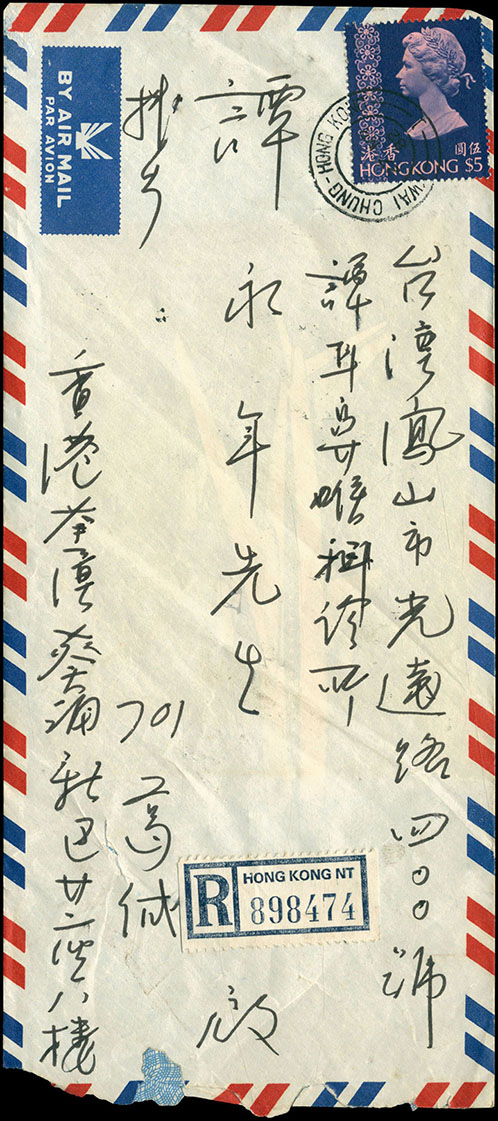 BY AIR MAIL
PAR AVION
香港 伍圓
HONG KONG $5
WAI CHUNG - HONG KONG
台灣鳳山市光遠路四〇〇號
譚耳鼻喉科診所
譚永年先生 啟
挂号
701 葛缄
香港荃湾葵涌新 廿二座八樓
R HONG KONG NT
898474